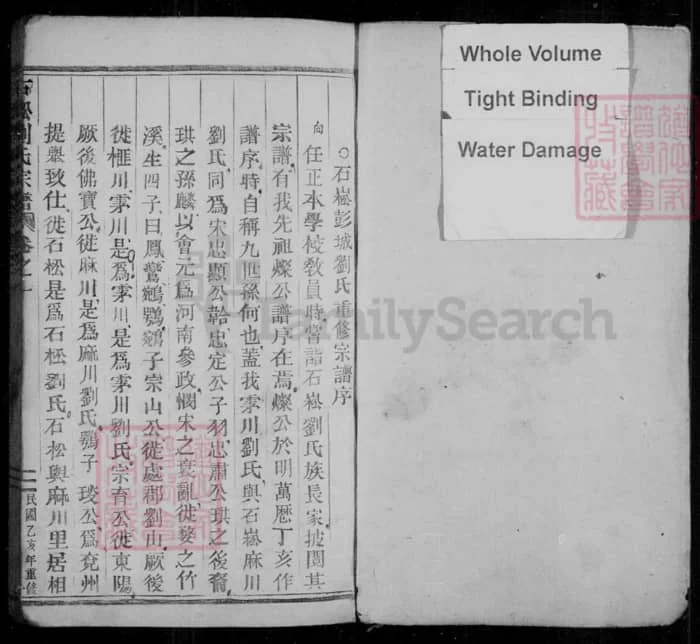 Whole Volume
Tight Binding
Water Damage
FamilySearch
○石崧彭城劉氏重修宗譜序
向任正本學校教員時嘗詣石崧劉氏族長家披閱其
宗譜有我先祖燦公譜序在焉燦公於明萬曆丁亥作
譜序時自稱九世孫何也蓋我豸川劉氏與石崧麻川
劉氏同爲宋忠顯公韐忠定公子羽忠肅公珙之後裔
珙之孫麟以會元爲河南參政憫宋之衰亂徙婺之竹
溪生四子曰鳳鸑鵷鶚鸑子宗山公徙處郡劉山厥後
徙榧川豸川是爲豸川是爲豸川劉氏宗育公徙東陽
厥後佛寶公徙麻川是爲麻川劉氏鶚子琰公爲兗州
提舉致仕徙石松是爲石松劉氏石松與麻川里居相
石松劉氏宗譜 卷之一
民國乙亥年重修